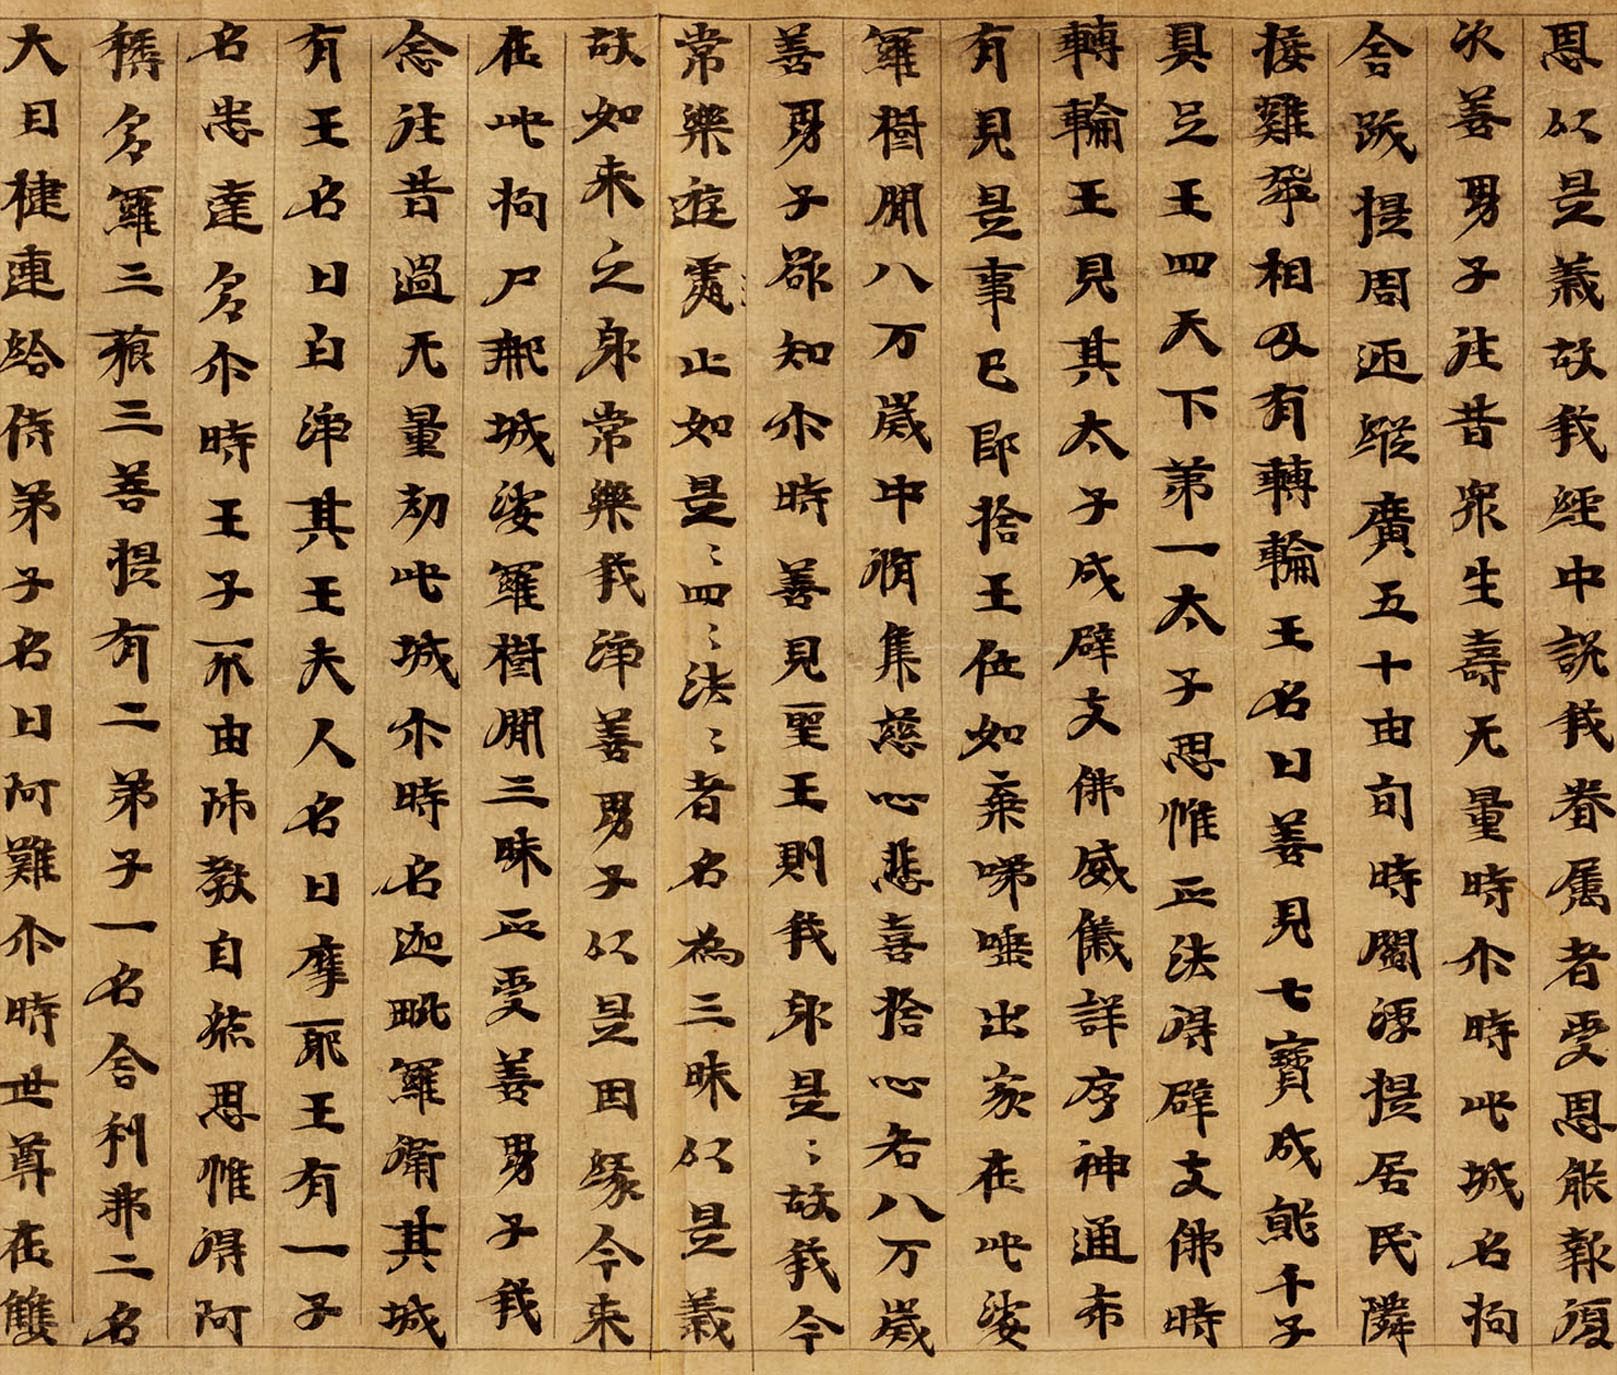 恩以是義故我經中說我眷属者受恩能報復
次善男子往昔衆生壽无量時尒時此城名拘
舍跋提周迊縱廣五十由旬時閻浮提居民隣
接雞飛相及有轉輪王名曰善見七寶成就千子
具足王四天下第一太子思惟正法得辟支佛時
轉輪王見其太子成辟支佛威儀詳序神通希
有見是事已即捨王位如棄唾出家在此娑
羅樹間八万歲中脩集慈心悲喜捨心各八万歲
善男子欲知尒時善見聖王則我身是〻故我今
常樂遊處止如是〻四〻法〻者名為三昧以是義
故如来之身常樂我淨善男子以是因緣今来
在此拘尸那城娑羅樹間三昧正受善男子我
念往昔過无量劫此城尒時名迦毗羅衛其城
有王名曰白淨其王夫人名曰摩耶王有一子
名悉達多尒時王子不由師教自然思惟得阿
耨多羅三藐三菩提有二弟子一名舍利弗二名
大目揵連給侍弟子名曰阿難尒時世尊在雙